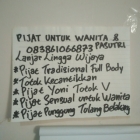 PIJAT UNTUK WANITA &
083861066873 PASUTRI
Lanjar Lingga Wijaya
* Pijat Tradisional Full Body
* Totok Kecantikan
* Pijat Yoni Totok V
* Pijat Sensual Untuk Wanita
* Pijat Punggung Tulang Belakang